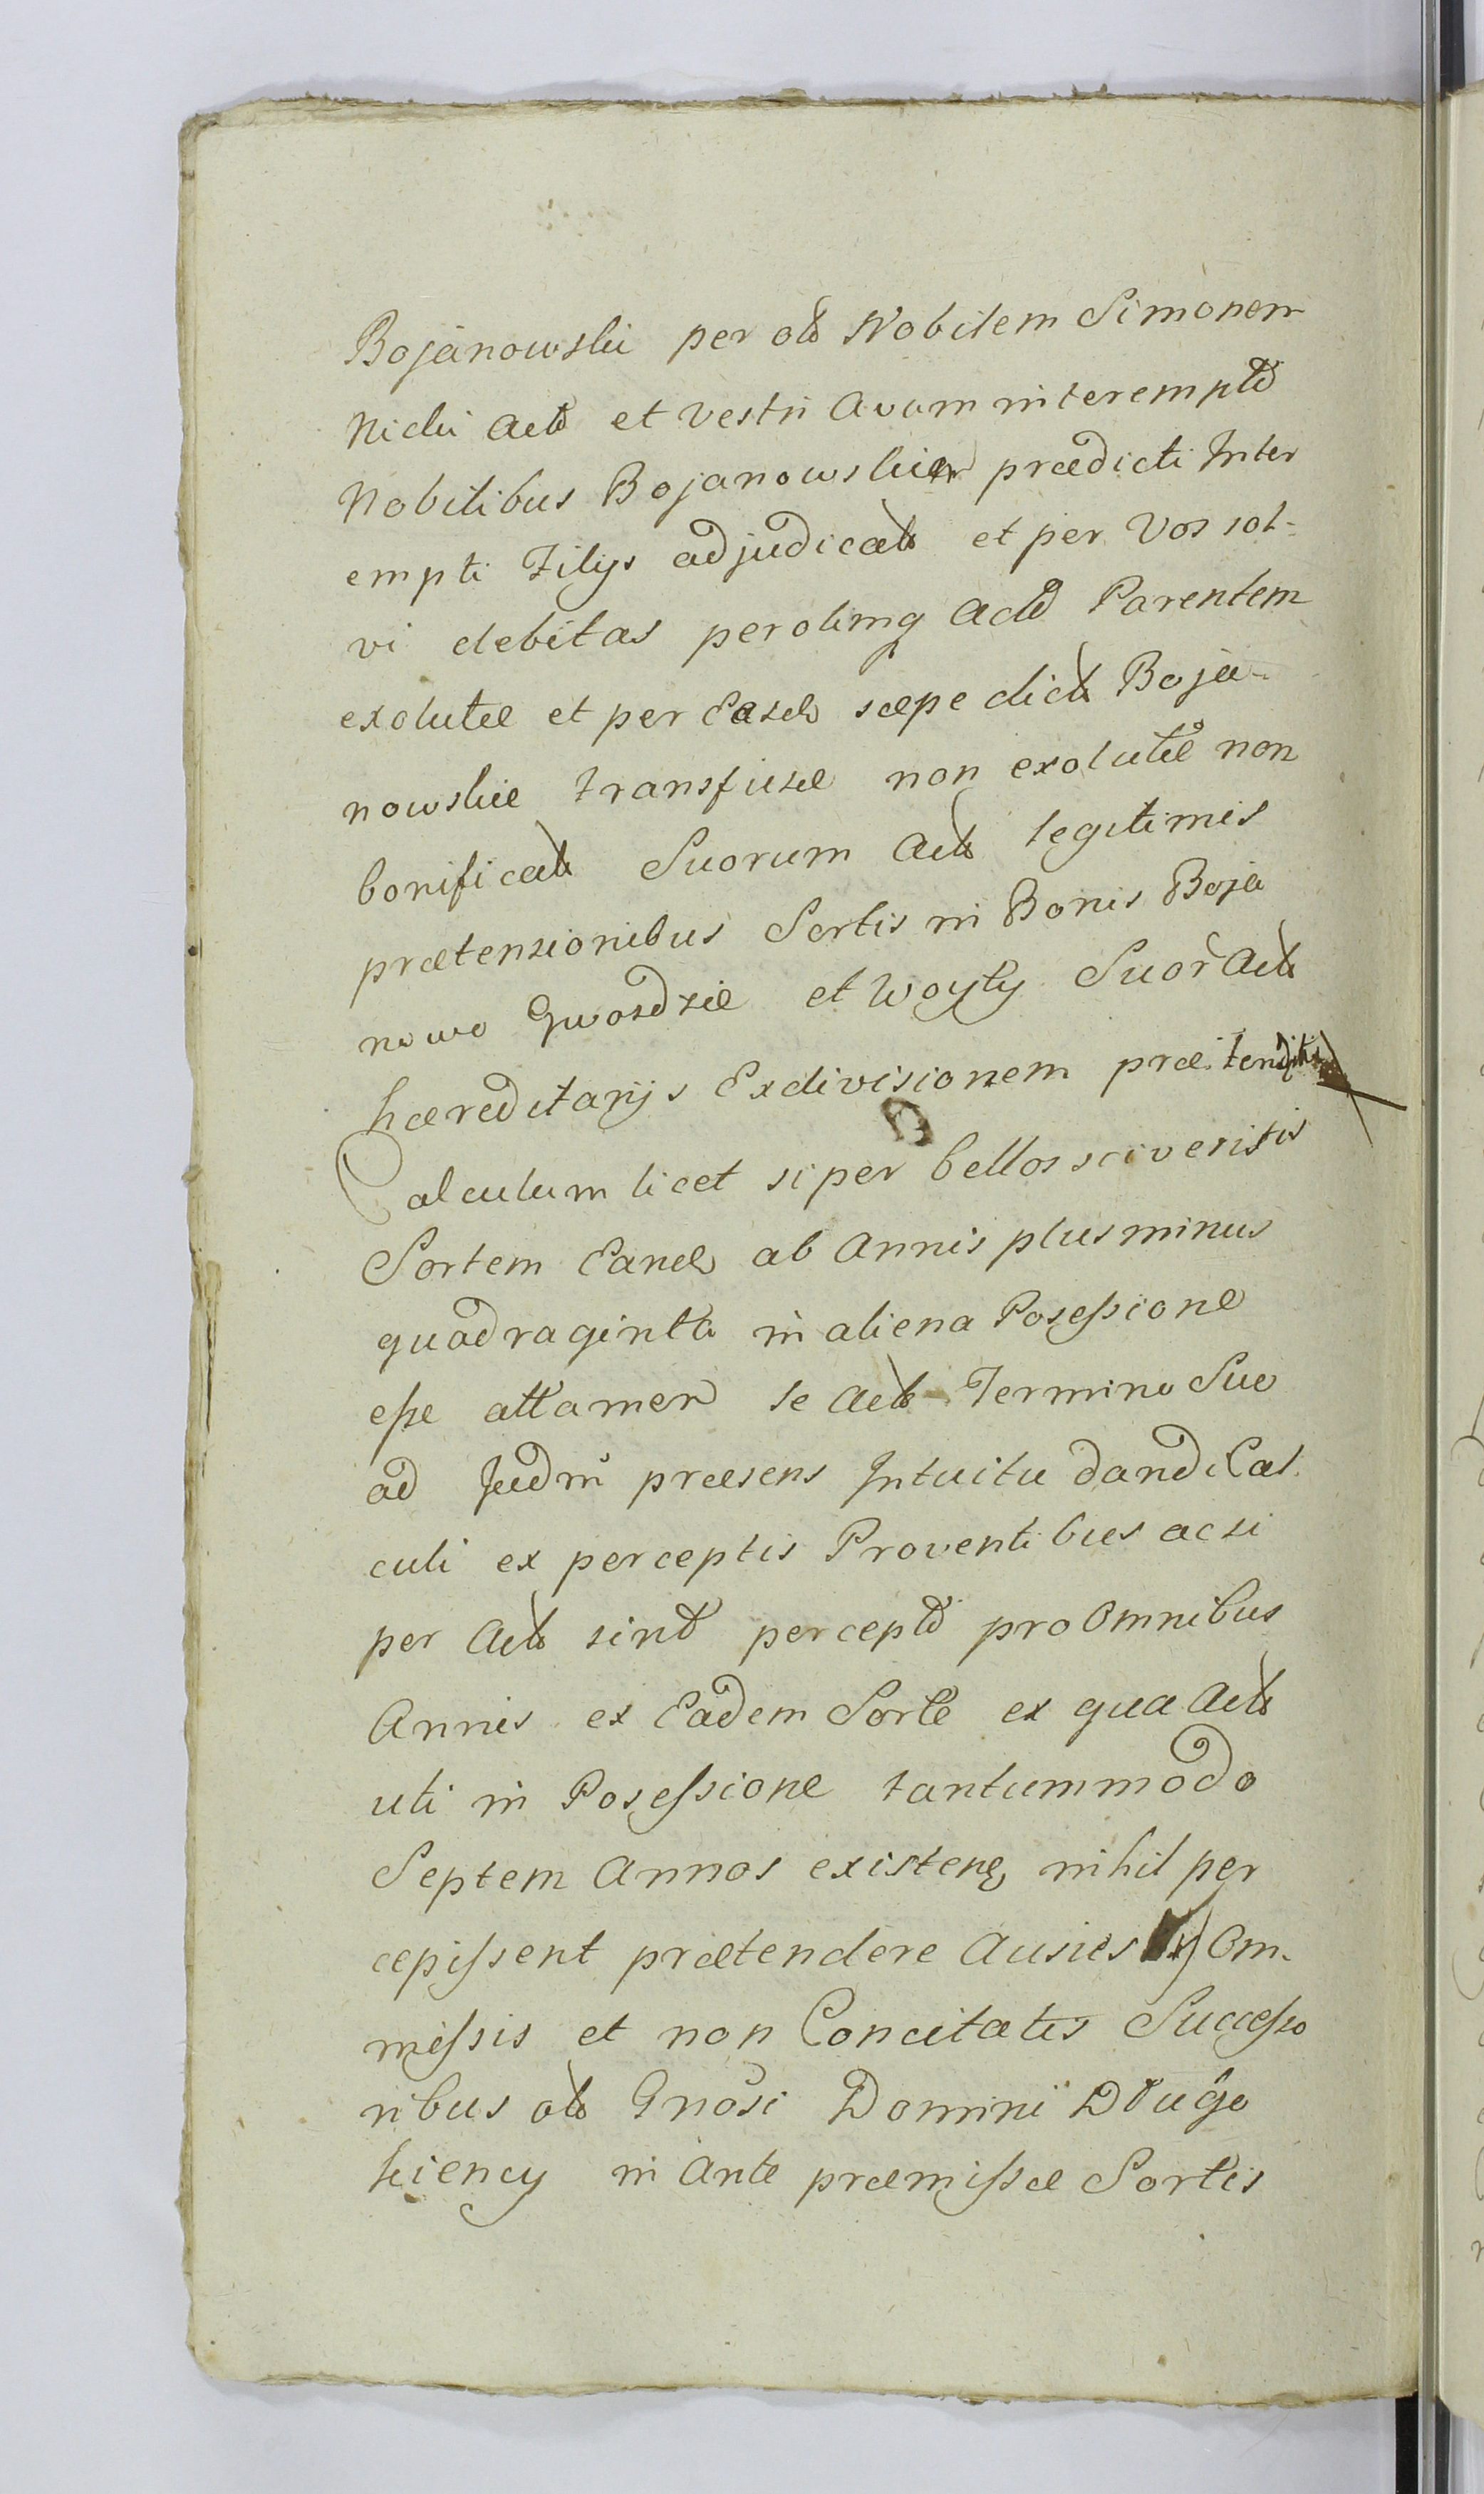 Bojanowski per ol Nobilem Simonem
Nicki Act et vestri Avum interempt
Nobilibus Bojanowskie prædicti Inter
empti Filijs adjudicat et per Vos sol=
vi debitas per olimq Act Parentem
exolutæ et per Easd sæpe dict Boja=
nowskie transfusæ non exolutæ non
bonificat Suorum Act legitimis
prætensionibus Sortis in Bonis Boja
nowo Gwosdzie et Woyty Suor Act
hæreditarijs Exdivisionem prætendit
Calculum licet siper bellos sciveritis
Sortem Eand ab Annis plus minus
quadraginta in aliena Posessione
esse attamen se Act Termino Suo
ad Judm præsens Intuitu dandi Cal
culi ex perceptis Proventibus acsi
per Act sint percept pro Omnibus
Annis ex Eadem Sorte ex qua Act
uti in Posessione tantummodo
Septem Annos existen nihil per
cepissent prætendere Ausus Om-
missis et non Concitatis Successo
ribus ol Gnosi Domini Długo
kiency in Ante præmissæ Sortis